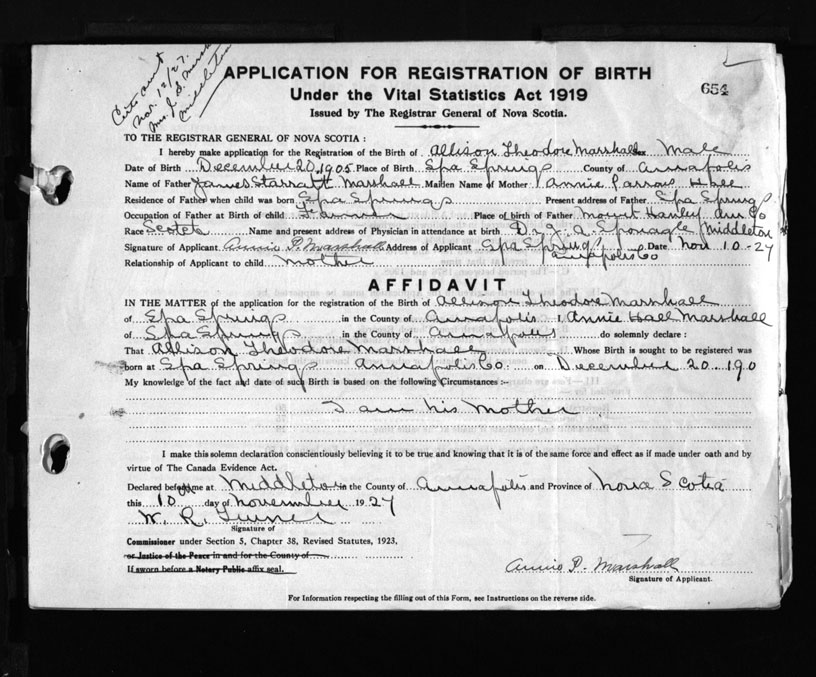 Nov. 12/27.
Middleton
APPLICATION FOR REGISTRATION OF BIRTH
654
Under the Vital Statistics Act 1919
Issued by The Registrar General of Nova Scotia.
TO THE REGISTRAR GENERAL OF NOVA SCOTIA :
I hereby make application for the Registration of the Birth of Allison Theodore Marshall Sex Male
Date of Birth December 20, 1905 Place of Birth Spa Springs County of Annapolis
Name of Father James Starratt Marshall Maiden Name of Mother Annie Hall
Residence of Father when child was born Spa Springs Present address of Father Spa Springs
Occupation of Father at Birth of child Farmer Place of birth of Father Mount Hanley Ann Co
Race Scotch Name and present address of Physician in attendance at birth Dr. J. A. Sponagle Middleton
Signature of Applicant Annie P. Marshall Address of Applicant Spa Springs Date Nov 10-27
Annapolis Co
Relationship of Applicant to child mother
AFFIDAVIT
IN THE MATTER of the application for the registration of the Birth of Allison Theodore Marshall
of Spa Springs in the County of Annapolis I Annie Hall Marshall
of Spa Springs in the County of Annapolis do solemnly declare :
That Allison Theodore Marshall Whose Birth is sought to be registered was
born at Spa Springs Annapolis Co. on December 20 190
My knowledge of the fact and date of such Birth is based on the following Circumstances :-
I am his Mother
I make this solemn declaration conscientiously believing it to be true and knowing that it is of the same force and effect as if made under oath and by
virtue of The Canada Evidence Act.
Declared before me at Middleton in the County of Annapolis and Province of Nova Scotia
this 10th day of November 1927
W. R.
Signature of
Commissioner under Section 5, Chapter 38, Revised Statutes, 1923,
or Justice of the Peace in and for the County of
If sworn before a Notary Public affix seal.
Annie P. Marshall
Signature of Applicant.
For Information respecting the filling out of this Form, see Instructions on the reverse side.